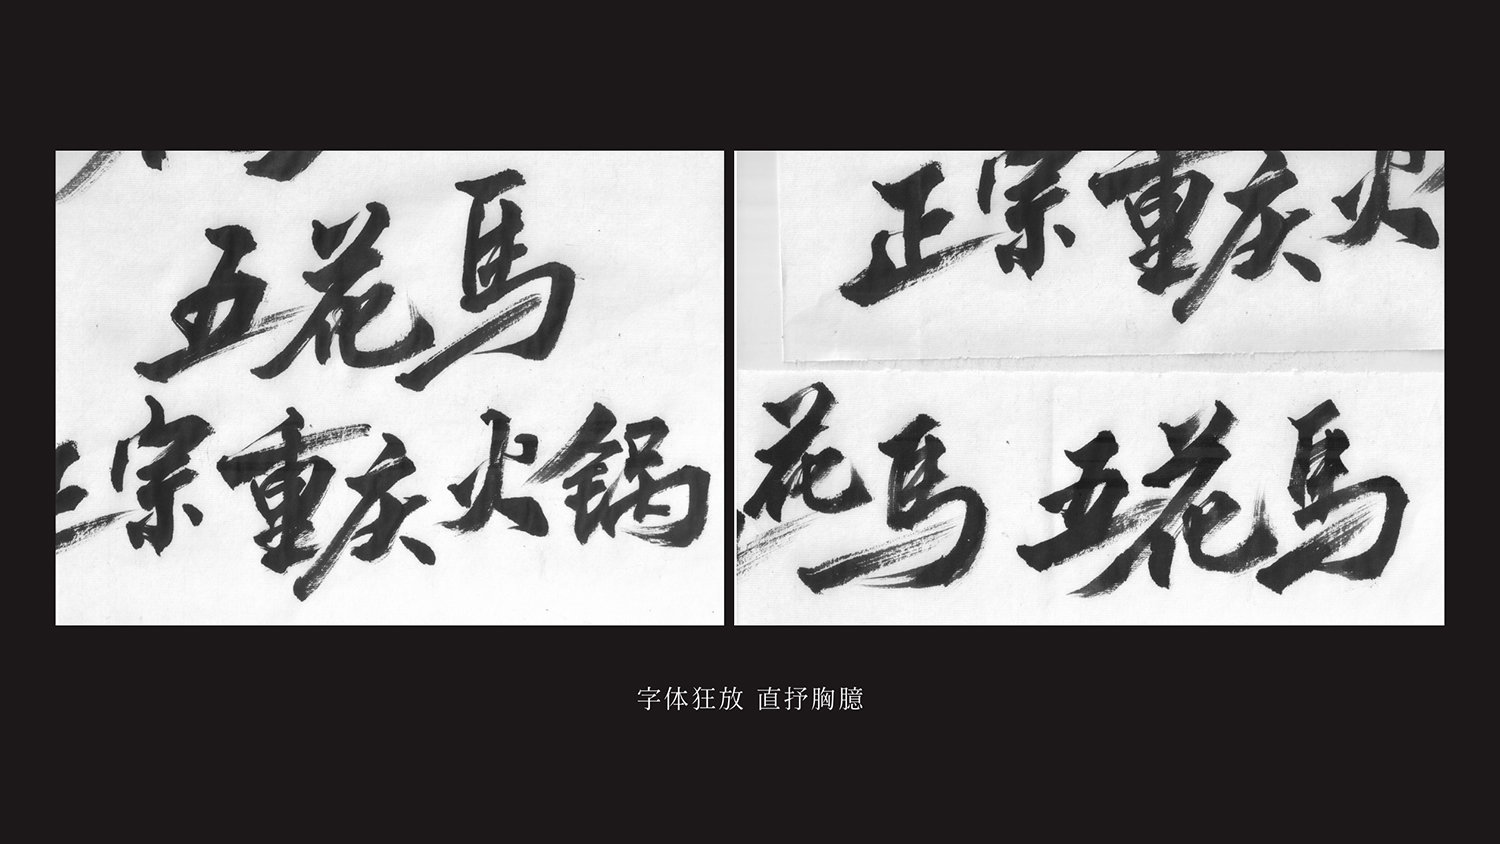 五花馬
正宗重庆火锅
正宗重庆火
花馬 五花馬
字体狂放 直抒胸臆